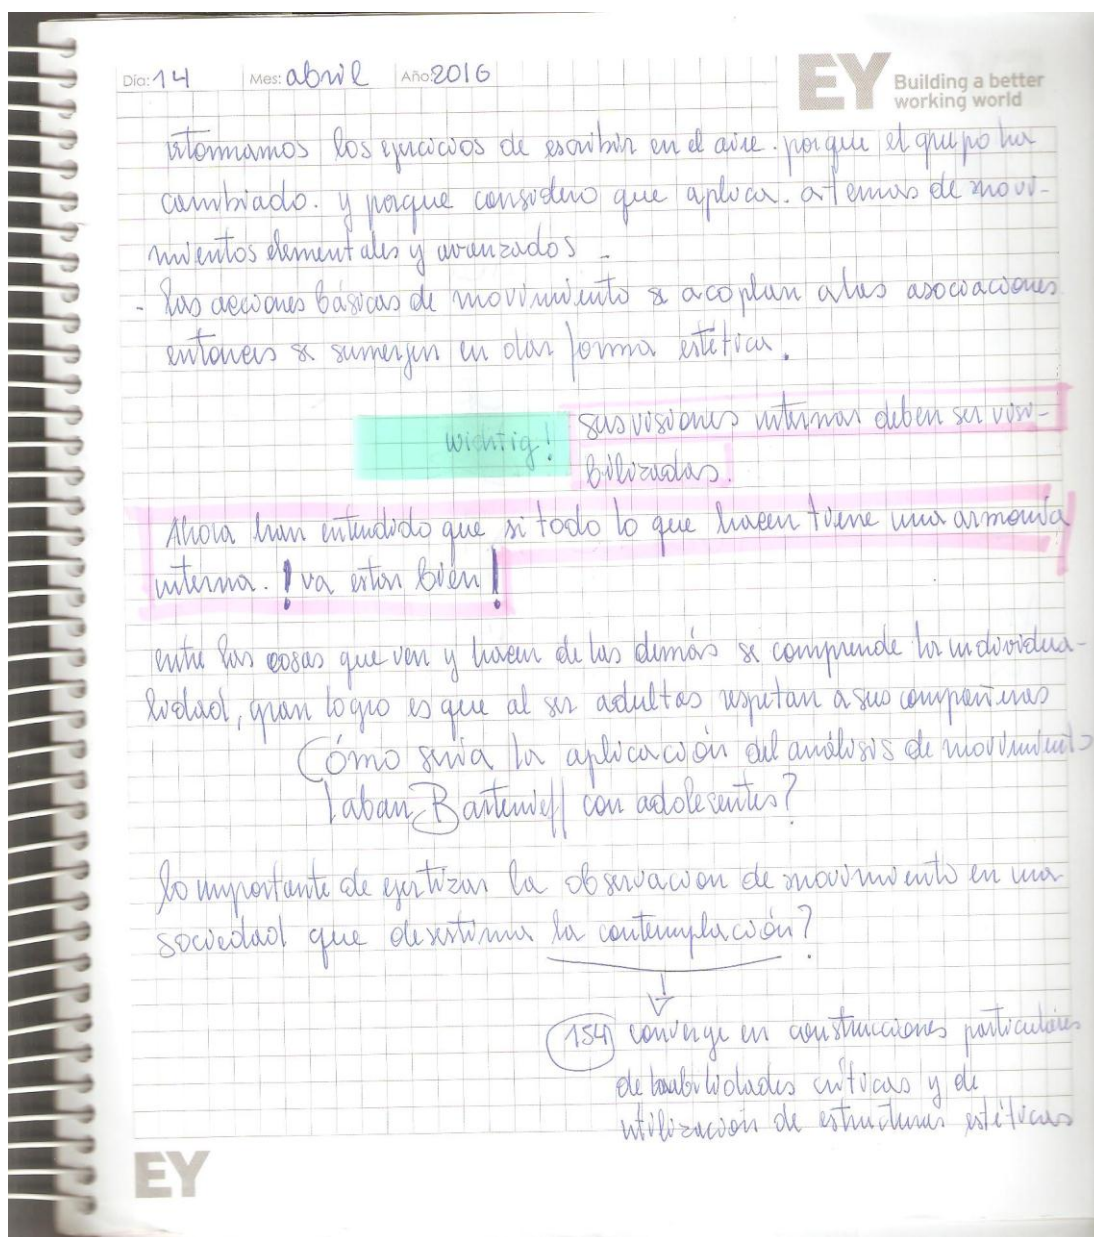 Día: 14 Mes: abril Año: 2016
EY Building a better
working world
retomamos los ejercicios de escribir en el aire. porque el grupo ha
cambiado. y porque considero que aplica. a temas de movi-
mientos elementales y avanzados -
- las acciones básicas de movimiento se acoplan a las asociaciones
entonces se sumerjen en dar forma estética.
wichtig! sus visiones internas deben ser visi-
bilizadas.
Ahora han entendido que si todo lo que hacen tiene una armonía
interna. ! va estar bien !
entre las cosas que ven y hacen de las demás se comprende la individua-
lidad, gran logro es que al ser adultas respetan a sus compañeras
Cómo sería la aplicación del análisis de movimiento
Laban Bartenieff con adolescentes?
lo importante de la observación de movimiento en una
sociedad que desestima la contemplación?
154 converge en construcciones particulares
de habilidades críticas y de
utilización de estructuras estéticas
EY